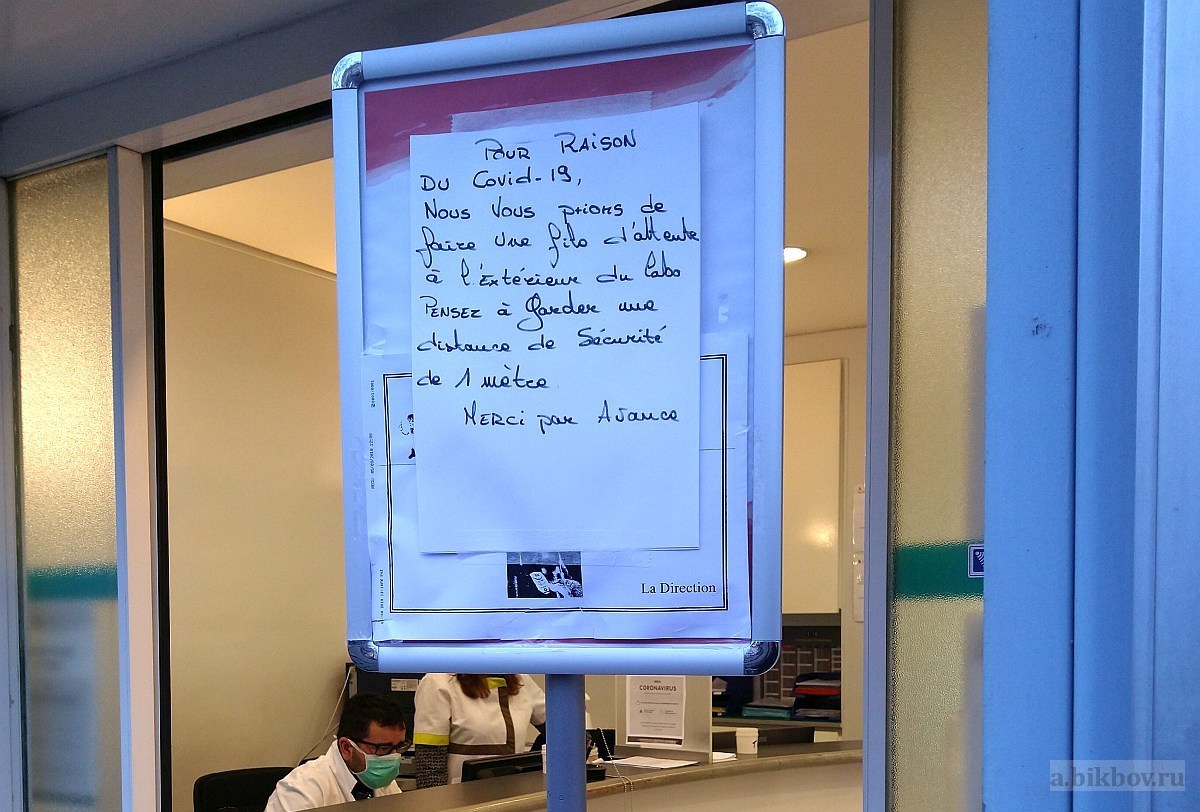 POUR RAISON
DU Covid-19,
NOUS VOUS prions de
faire une file d'attente
à l'Extérieur du labo
PENSEZ à Garder une
distance de Sécurité
de 1 mètre
MERCI par Avance
La Direction
CORONAVIRUS
a.bikbov.ru